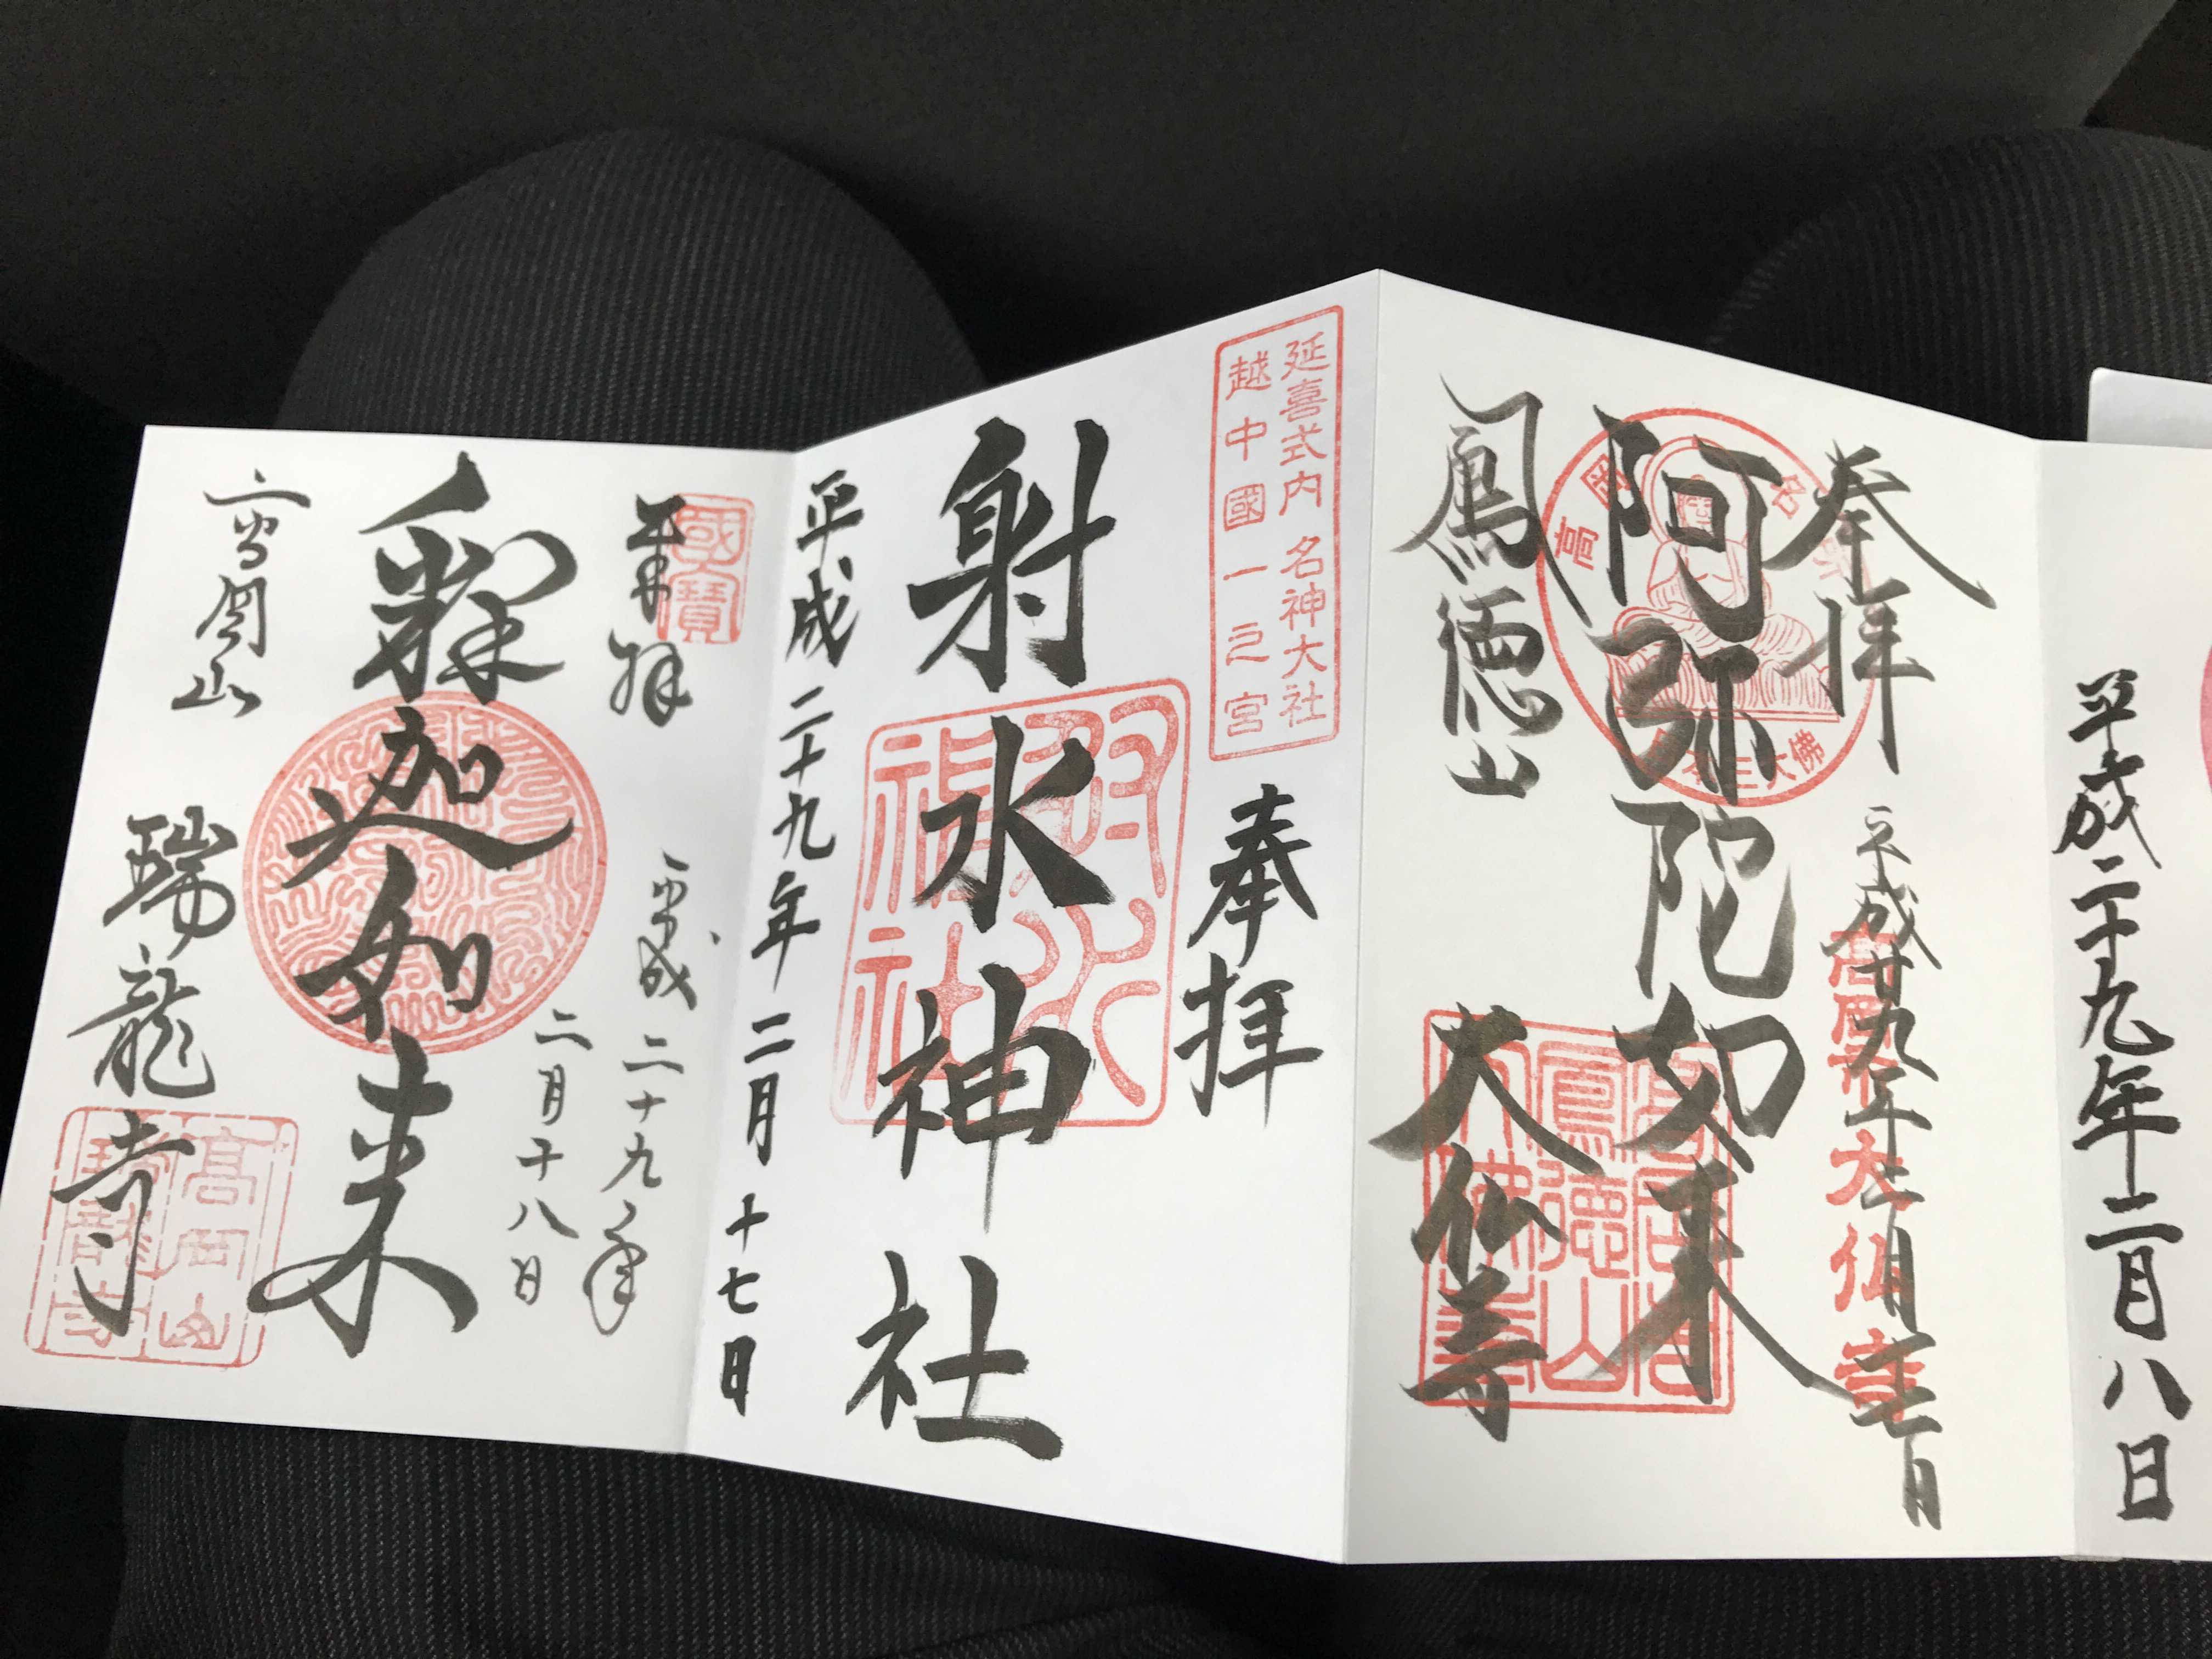 平成二十九年二月八日
奉拝
平成廿九年二月十七日
高岡大佛
阿弥陀如来
鳳徳山
大仏寺
高岡
名
大佛
鳳徳山
延喜式内 名神大社
越中國一之宮
奉拝
射水神社
射水
神社
平成二十九年二月十七日
國寶
奉拝
平成二十九年
二月十八日
釋迦如来
高岡山
瑞龍寺
高岡山
瑞龍寺